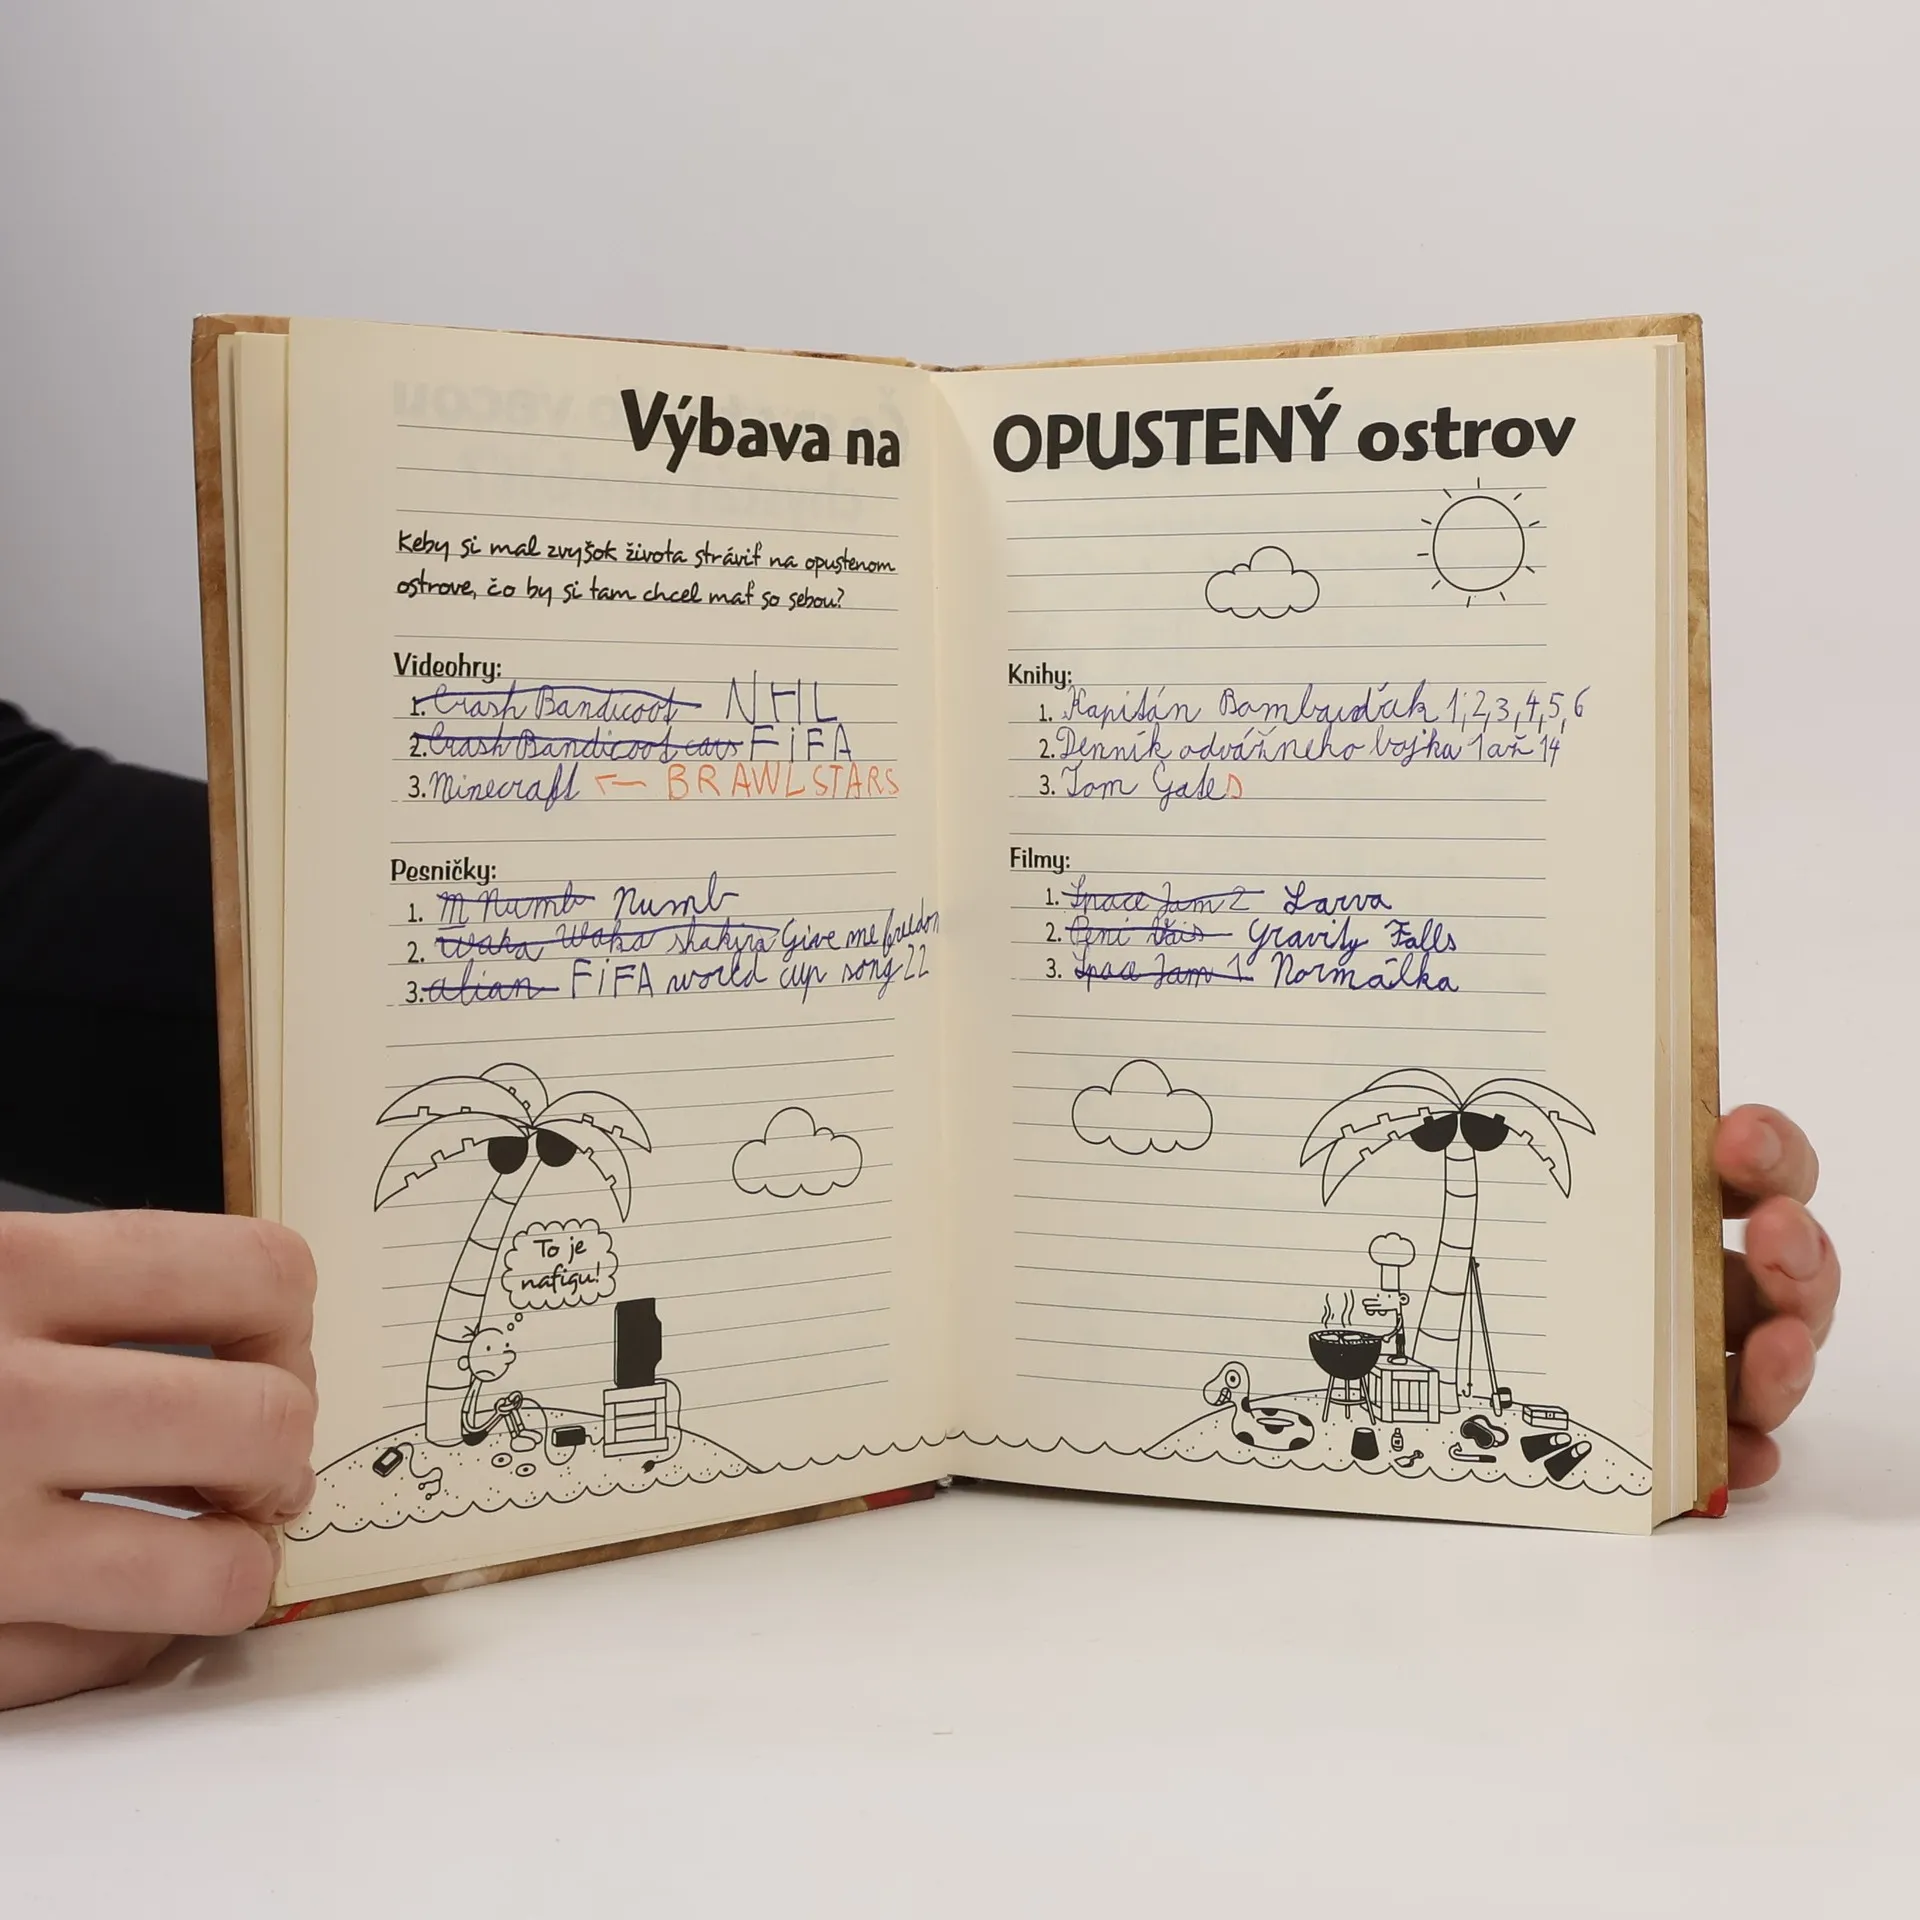 Výbava na OPUSTENÝ ostrov
Keby si mal zvyšok života stráviť na opustenom
ostrove, čo by si tam chcel mať so sebou?
Videohry:
1. Crash Bandicoot NHL
2. Crash Bandicoot cars FiFA
3. Minecraft ← BRAWLSTARS
Pesničky:
1. M Numb Numb
2. Waka Waka shakira Give me freedom
3. alian FiFA world cup song 22
To je
nafigu!
Knihy:
1. Kapitán Bombarďák 1,2,3,4,5,6
2. Denník odvážneho bojka 1 až 14
3. Tom Gates
Filmy:
1. Space Jam 2 Larva
2. Gravity Falls
3. Space Jam 1 Normálka